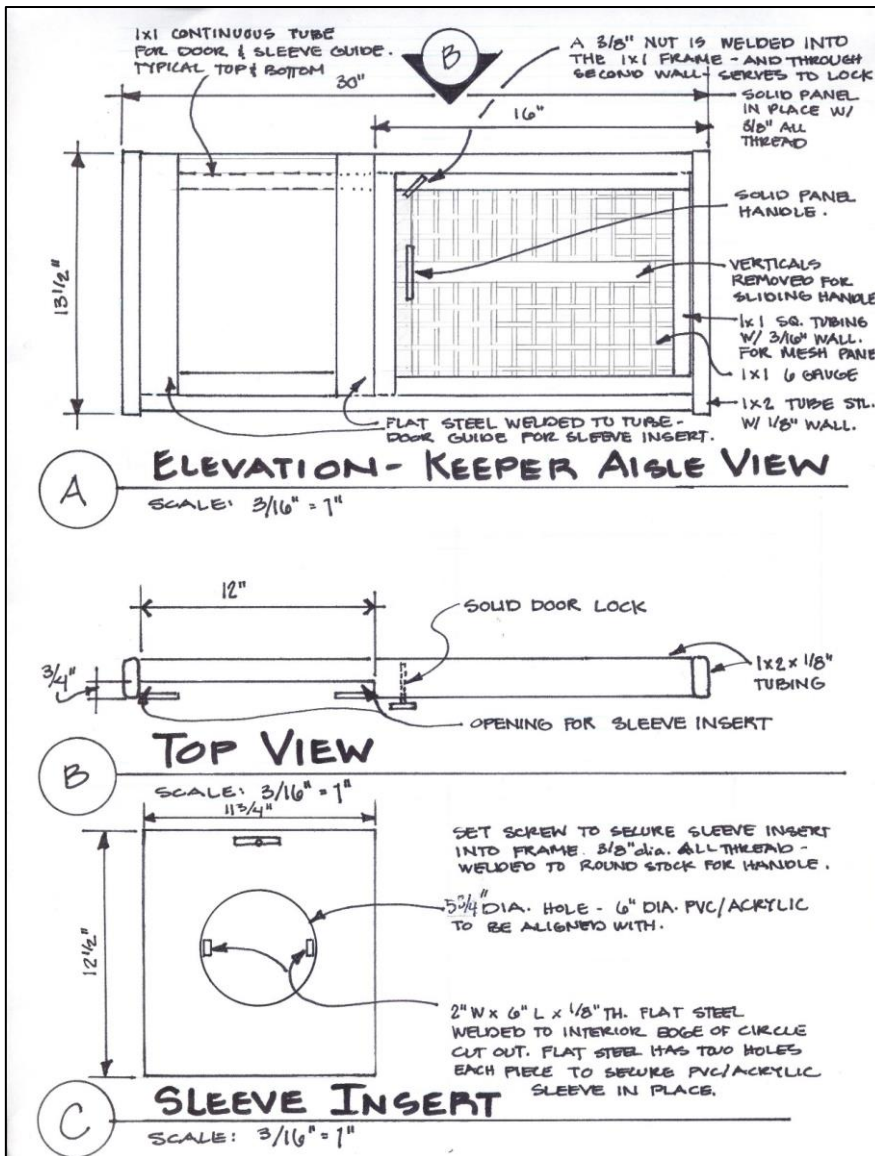 1x1 CONTINUOUS TUBE
FOR DOOR & SLEEVE GUIDE.
TYPICAL TOP & BOTTOM
30"
B
A 3/8" NUT IS WELDED INTO
THE 1x1 FRAME - AND THROUGH
SECOND WALL - SERVES TO LOCK
SOLID PANEL
IN PLACE W/
3/8" ALL
THREAD
16"
SOLID PANEL
HANDLE.
13 1/2"
VERTICALS
REMOVED FOR
SLIDING HANDLE
1x1 SQ. TUBING
W/ 3/16" WALL.
FOR MESH PANE
1x1 6 GAUGE
1x2 TUBE STL.
W/ 1/8" WALL.
FLAT STEEL WELDED TO TUBE -
DOOR GUIDE FOR SLEEVE INSERT.
A
ELEVATION - KEEPER AISLE VIEW
SCALE: 3/16" = 1"
12"
SOLID DOOR LOCK
3/4"
1x2 x 1/8"
TUBING
OPENING FOR SLEEVE INSERT
B
TOP VIEW
SCALE: 3/16" = 1"
11 3/4"
SET SCREW TO SECURE SLEEVE INSERT
INTO FRAME. 3/8" dia. ALL THREAD -
WELDED TO ROUND STOCK FOR HANDLE.
5 3/4" DIA. HOLE - 6" DIA. PVC/ACRYLIC
TO BE ALIGNED WITH.
12 1/2"
2" W x 6" L x 1/8" TH. FLAT STEEL
WELDED TO INTERIOR EDGE OF CIRCLE
CUT OUT. FLAT STEEL HAS TWO HOLES
EACH PIECE TO SECURE PVC/ACRYLIC
SLEEVE IN PLACE.
C
SLEEVE INSERT
SCALE: 3/16" = 1"